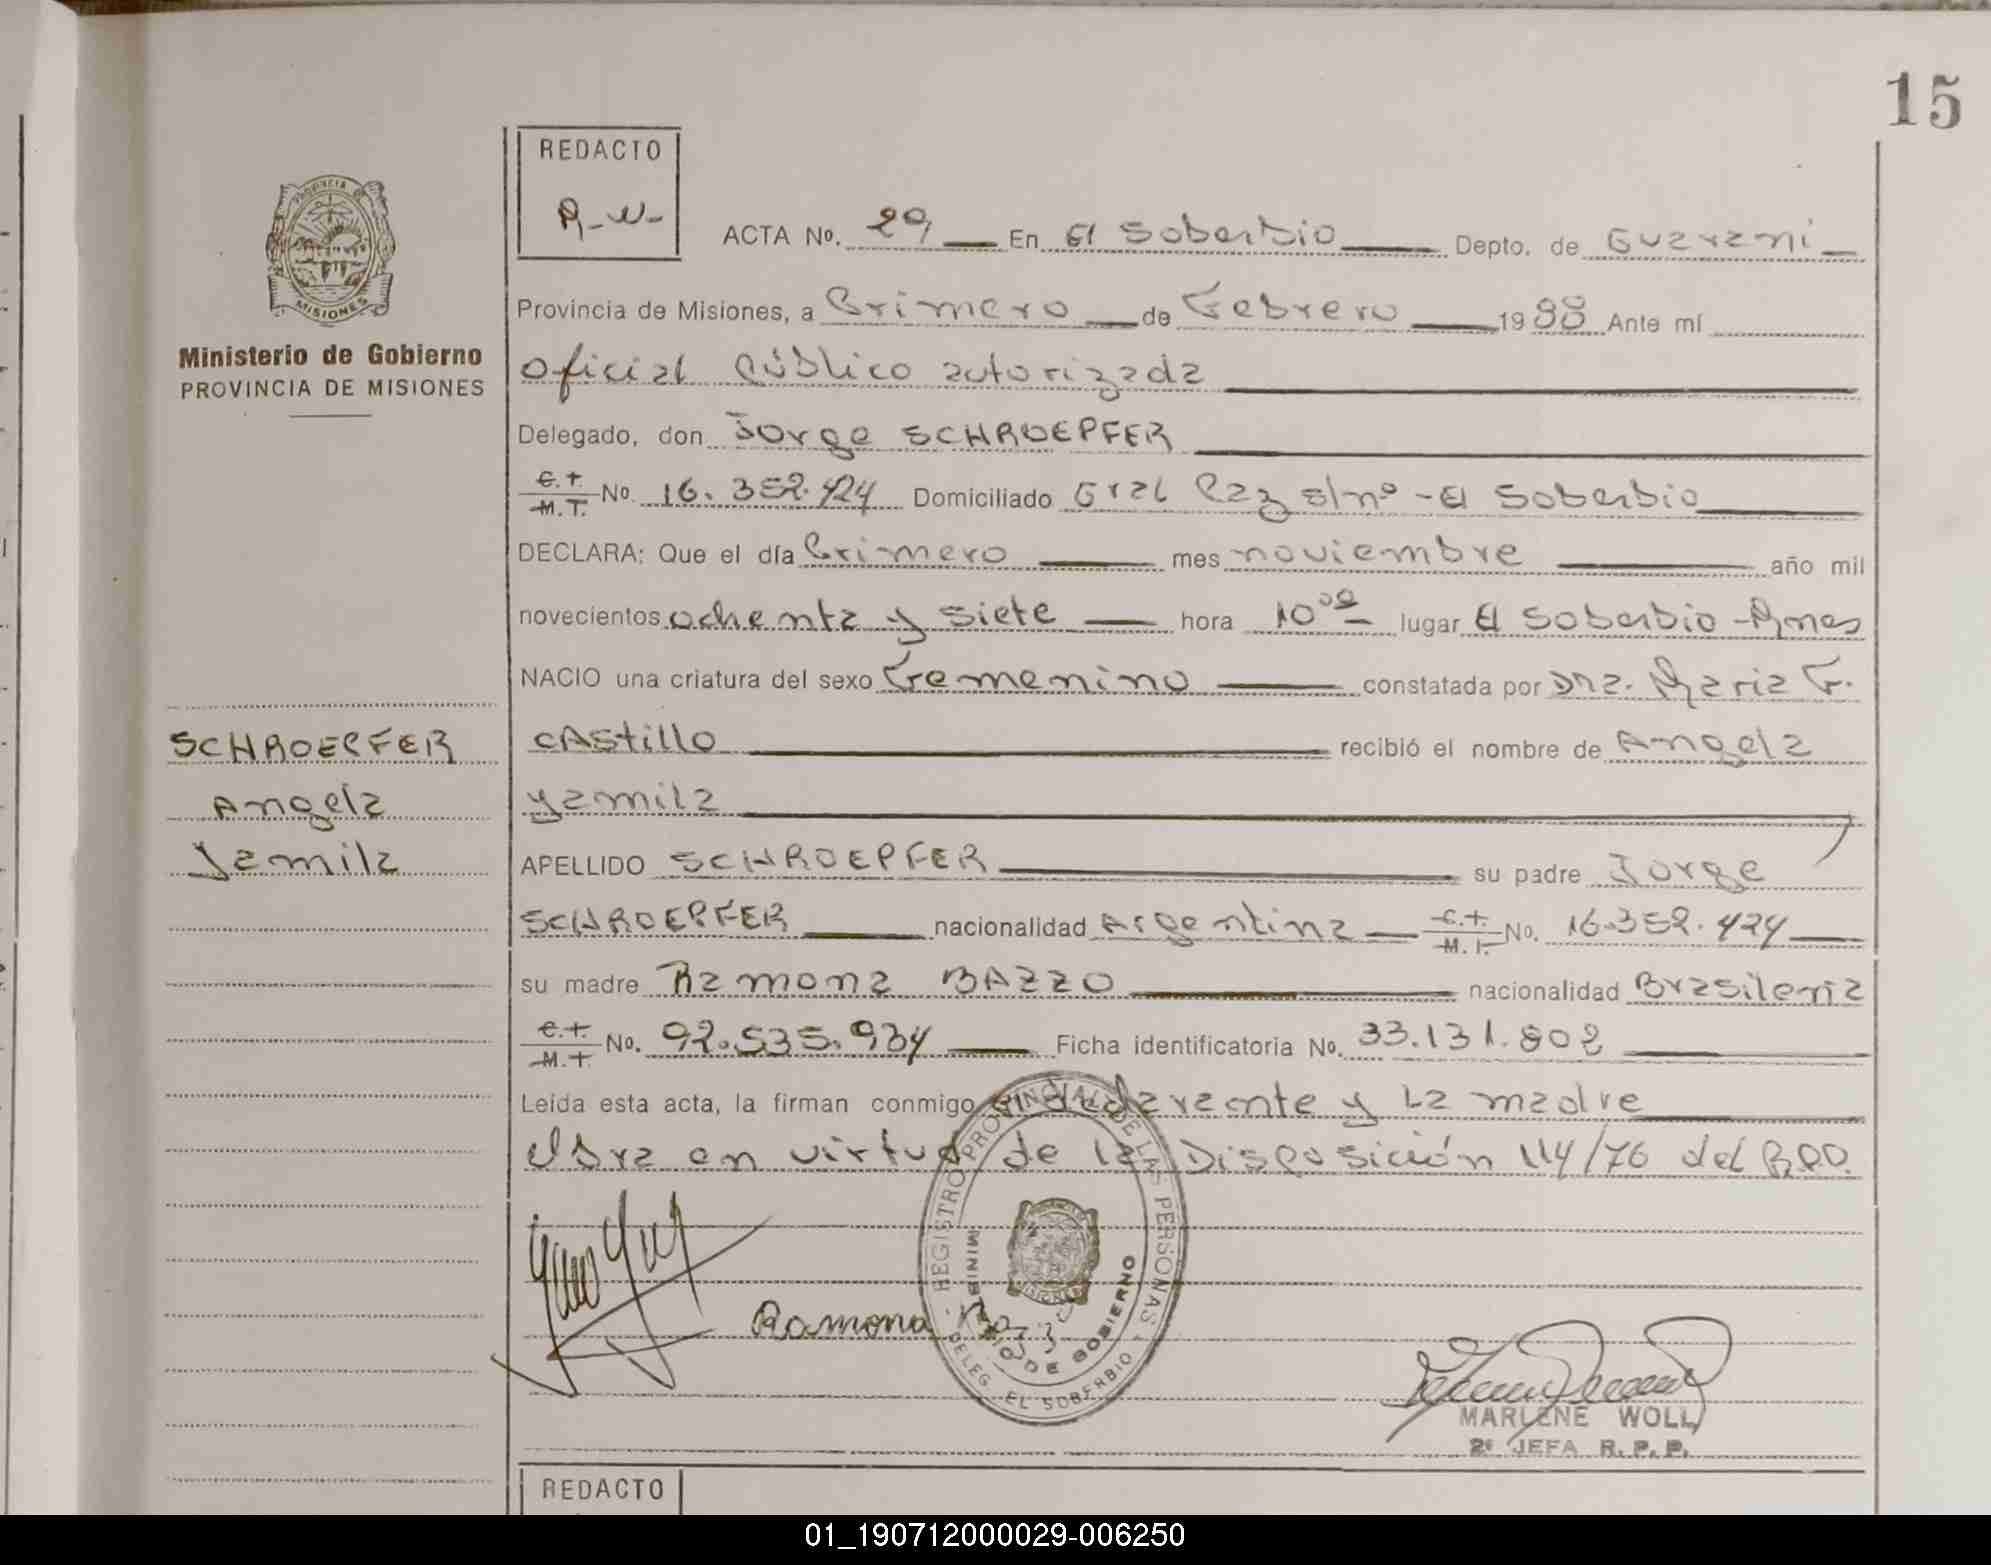 15
REDACTO
PROVINCIA DE
MISIONES
Ministerio de Gobierno
PROVINCIA DE MISIONES
ACTA No. 29 En El Soberbio Depto. de Guarani
Provincia de Misiones, a Primero de Febrero 1988 Ante mí
oficial Público autorizada
Delegado, don Jorge SCHROEPFER
C.I. M.I. No. 16.352.424 Domiciliado Gral Paz s/nº - El Soberbio
DECLARA: Que el día Primero mes noviembre año mil
novecientos ochenta y siete hora 10ºº lugar El Soberbio - Mnes
NACIO una criatura del sexo Femenino constatada por Dra. Maria F.
CAStillo recibió el nombre de Angela
yamila
SCHROEPFER
Angela
Yamila
APELLIDO SCHROEPFER su padre Jorge
SCHROEPFER nacionalidad Argentina C.I. M.I. No. 16.352.424
su madre Ramona BAZZO nacionalidad Brasileria
C.I. M.I. No. 92.535.934 Ficha identificatoria No. 33.131.802
Leída esta acta, la firman conmigo el declarante y la madre
en virtud de la Disposición 114/76 del R.P.P.
REGISTRO PROVINCIAL DE LAS PERSONAS
MINISTERIO DE GOBIERNO
DELEG. EL SOBERBIO
Ramona
MARLENE WOLL
2º JEFA R. P. P.
REDACTO
01_190712000029-006250